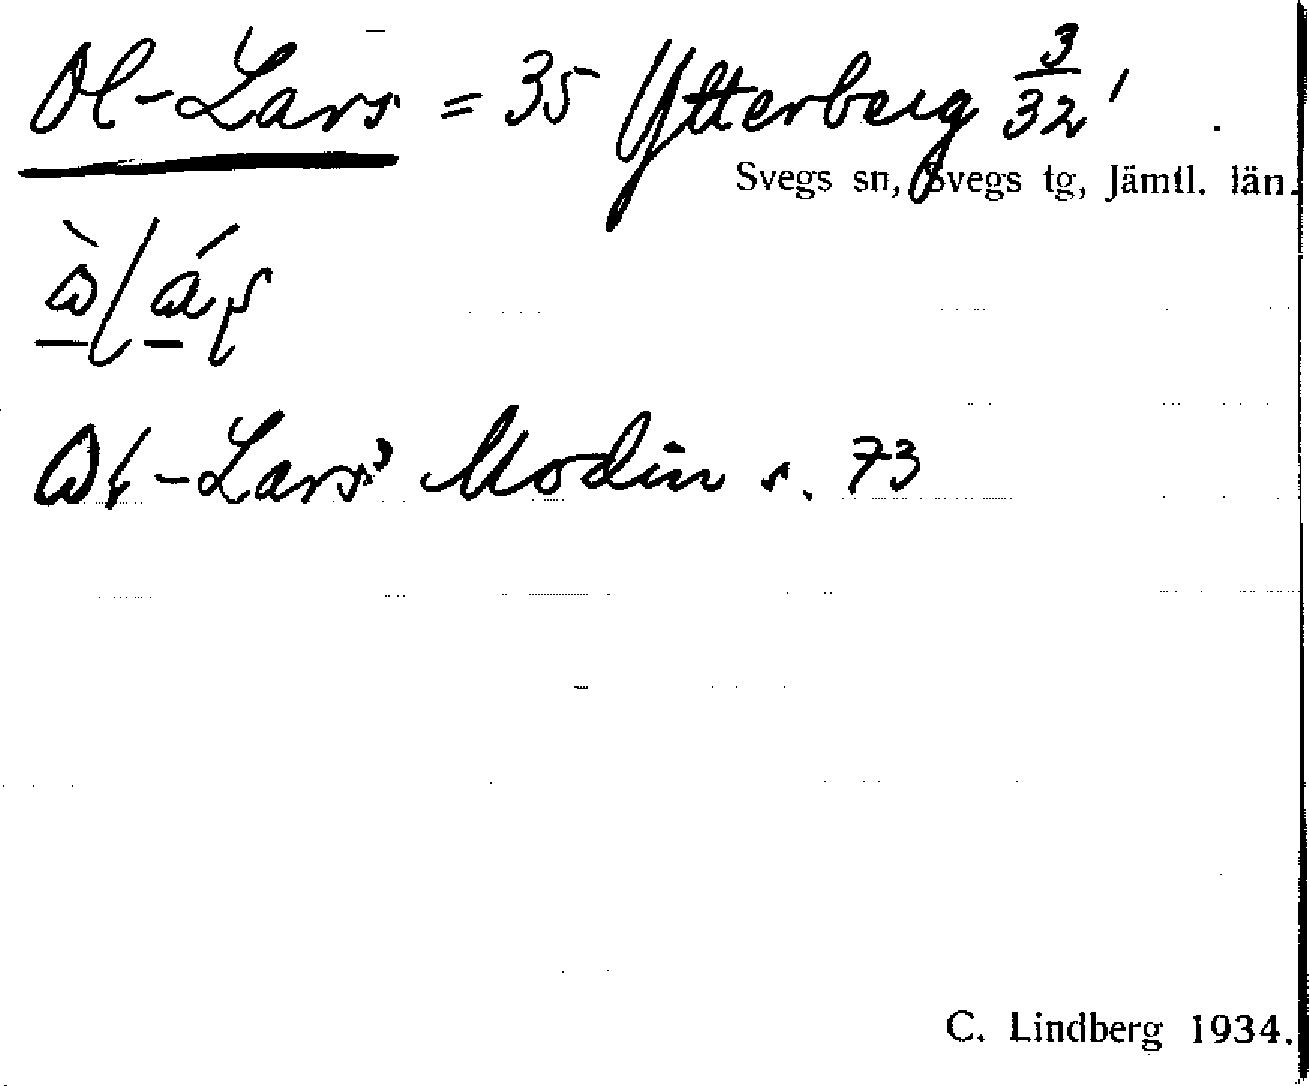 Ol-Lars = 35 Ytterberg 3/32'
Svegs sn, Svegs tg, Jämtl. län.
-Lars' Modin s. 73
C. Lindberg 1934.